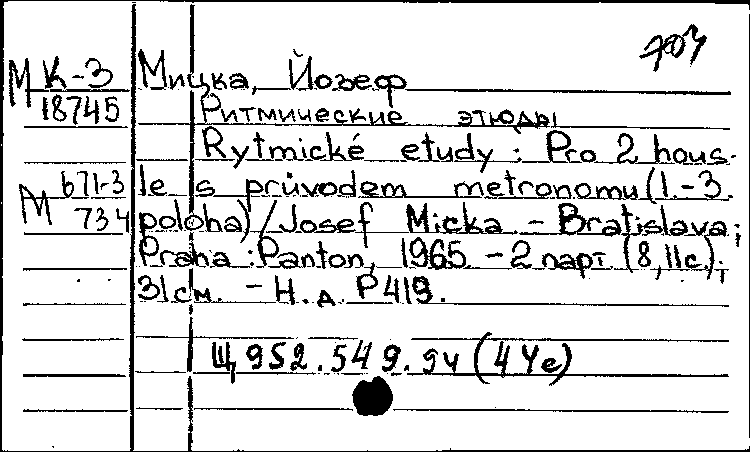 М К-3
18745
Мицка, Йозеф
Ритмические этюды
Rytmické etudy : Pro 2 hous-
М 671-3
734
le s průvodem metronomu (1.-3.
poloha) / Josef Micka – Bratislava;
Praha : Panton, 1965. – 2 парт. (8, 11с.);
31см. – Н. д. Р419.
Щ952.549.9Ч (4Че)